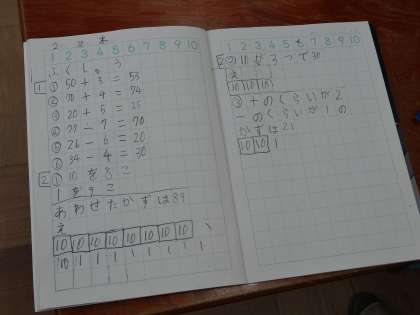 1 2 3 4 5 6 7 8 9 10
ふくしゅう
1 ① 50+3=53
② 70+4=74
③ 20+5=25
④ 77-7=70
⑤ 26-6=20
⑥ 34-4=30
2 ① 10を8こ
1を9こ
あわせたかずは89
え
10 10 10 10 10 10 10 10
1 1 1 1 1 1 1
1 2 3 4 5 6 7 8 9 10
②10が3つで30
え
10 10 10
③十のくらいが2
一のくらいが1の
かずは21
10 10 1